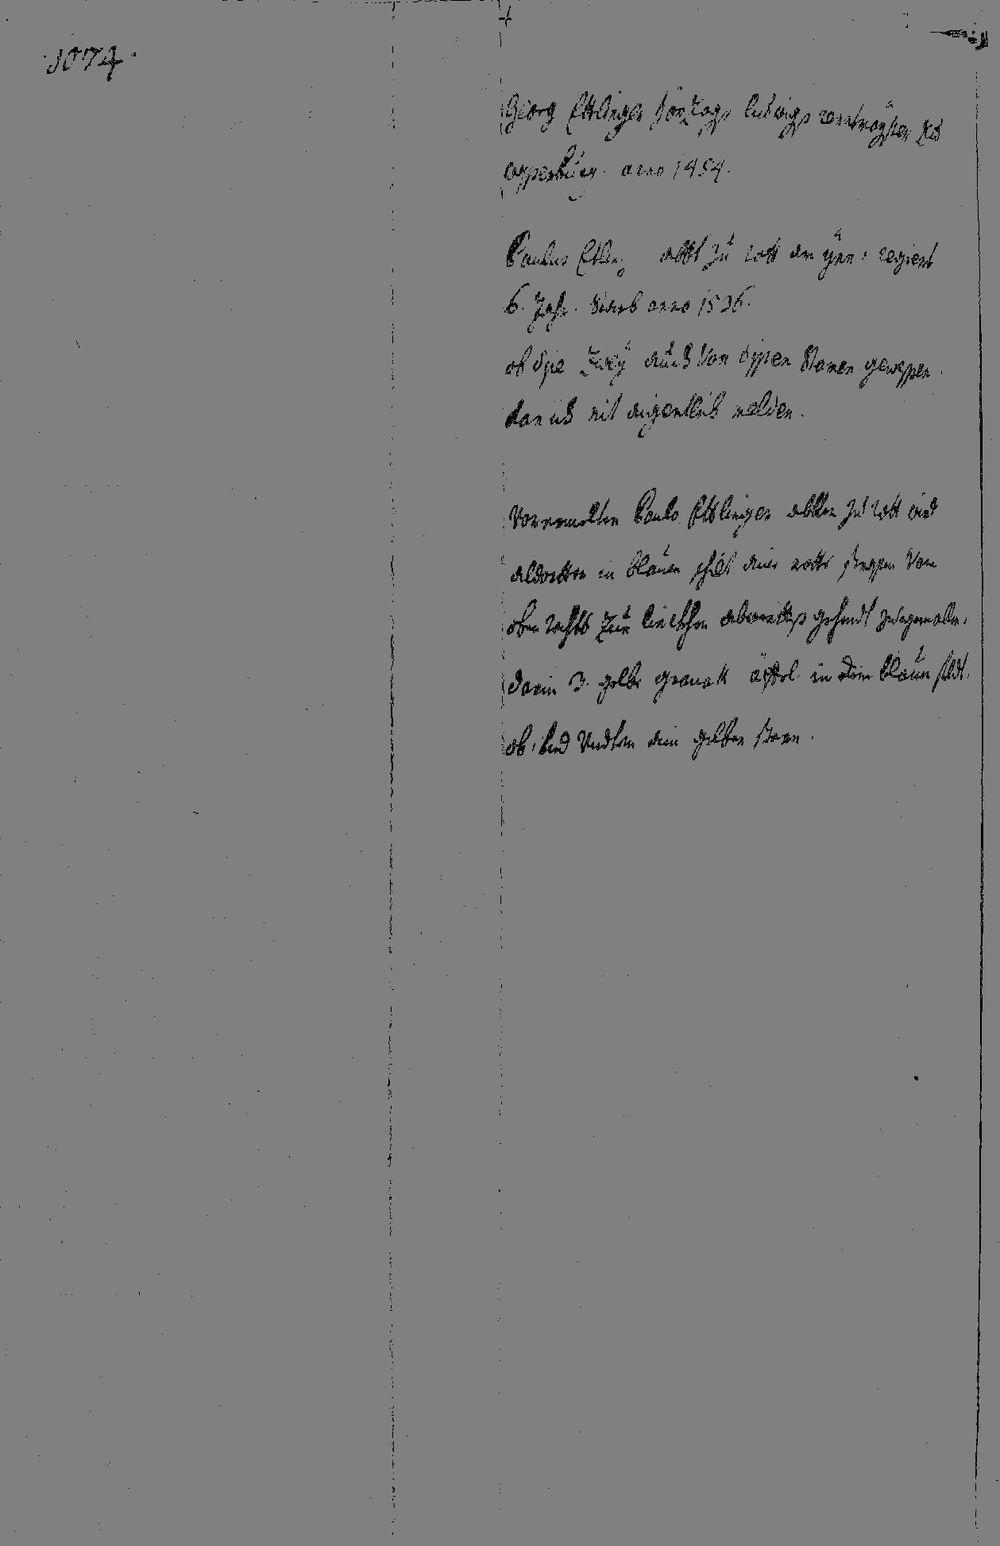 1074.
Georg Ettlinger hörzogs ludwigs rentmayster zu
wasserburg. anno 1454.
Paulus Ettling abbt zu rott am ÿnn. regiert
6. Jahr. starb anno 1536.
ob dise zweÿ auch von disem Stamen gewessen.
kan ich nit aigentlich melden.
Vorermelten Paulo Ettlinger abbten zu rott wird
aldortten in blauen schilt ein rotte strassen Von
oben rechts zur linckhen abwerths gehendt zuegemalt.
darin 3. gelbe granatt äpfel. in dem blauen feldt.
ob. und Undten ein gelber stern.